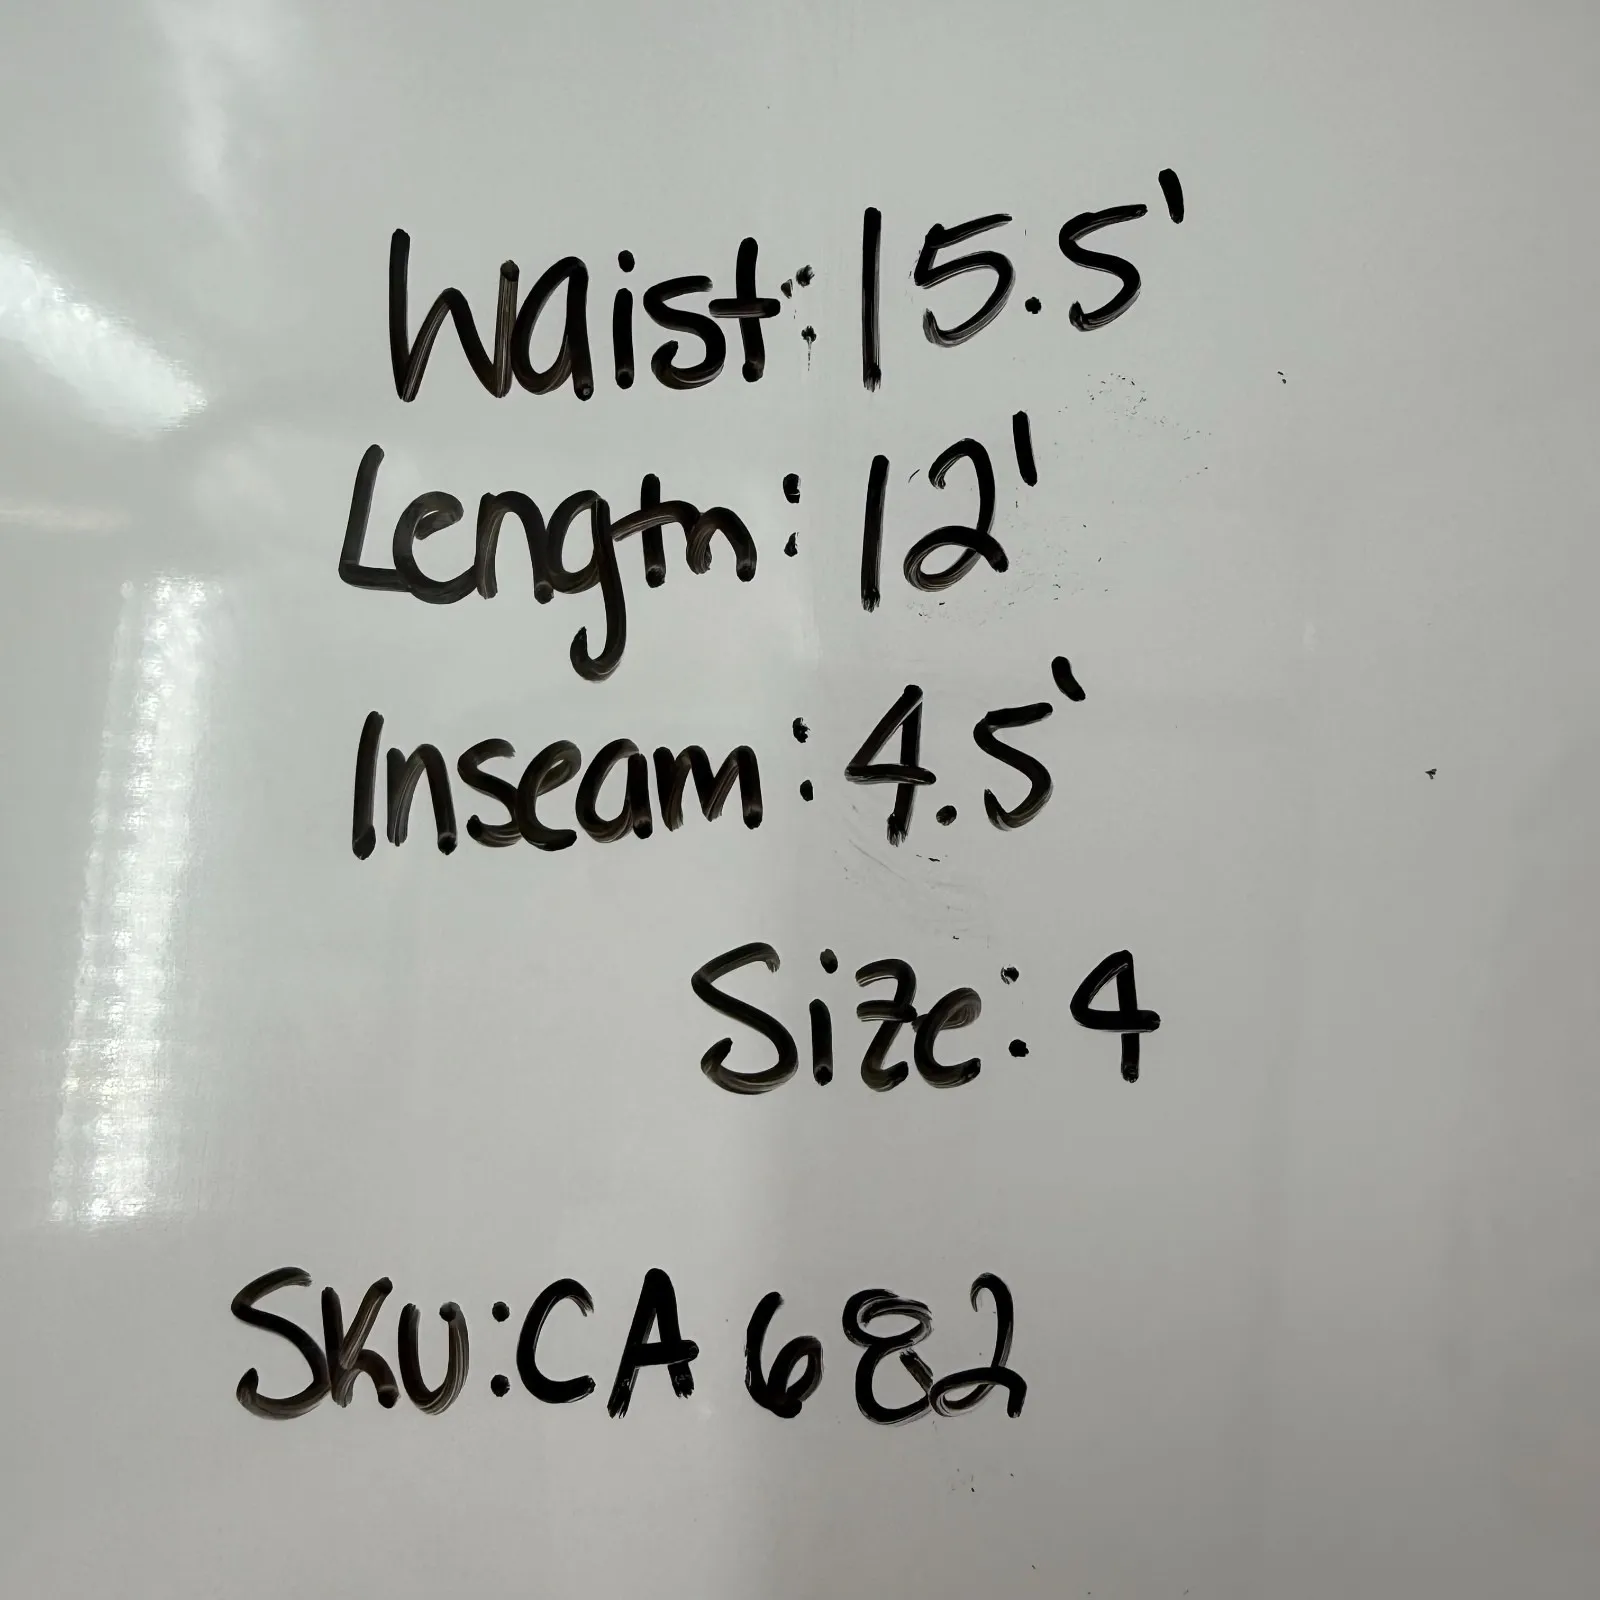 Waist: 15.5'
Length: 12'
Inseam: 4.5'
Size: 4
SKU: CA 682